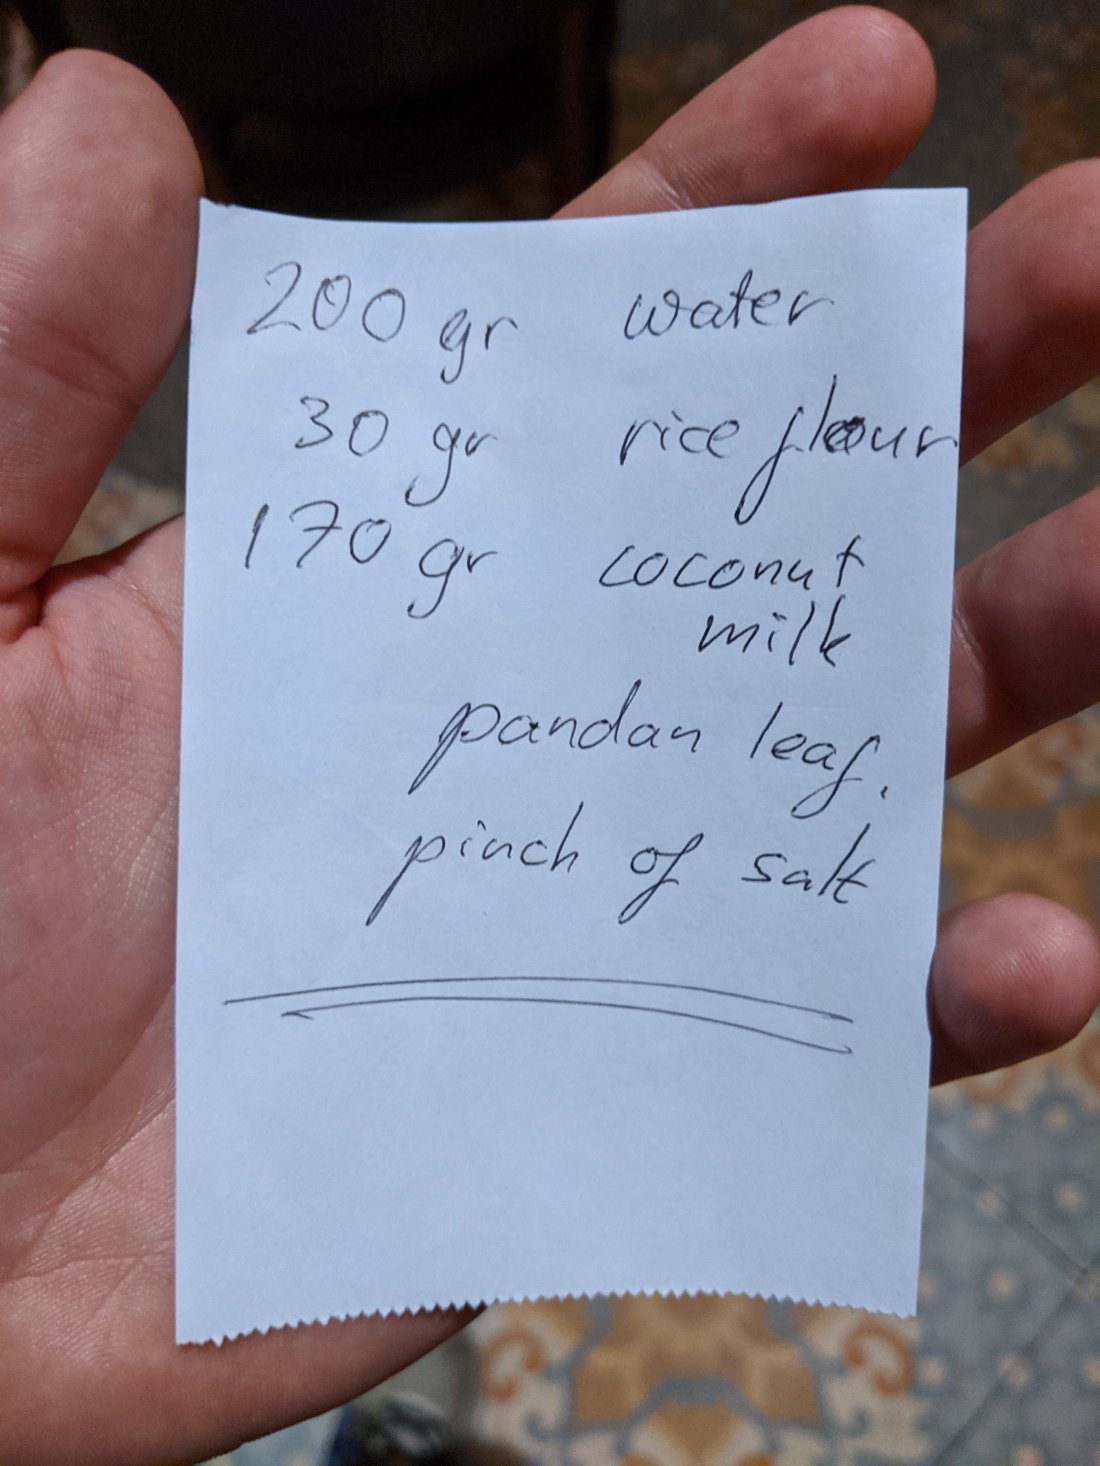 200 gr water
30 gr rice flour
170 gr coconut
milk
pandan leaf.
pinch of salt